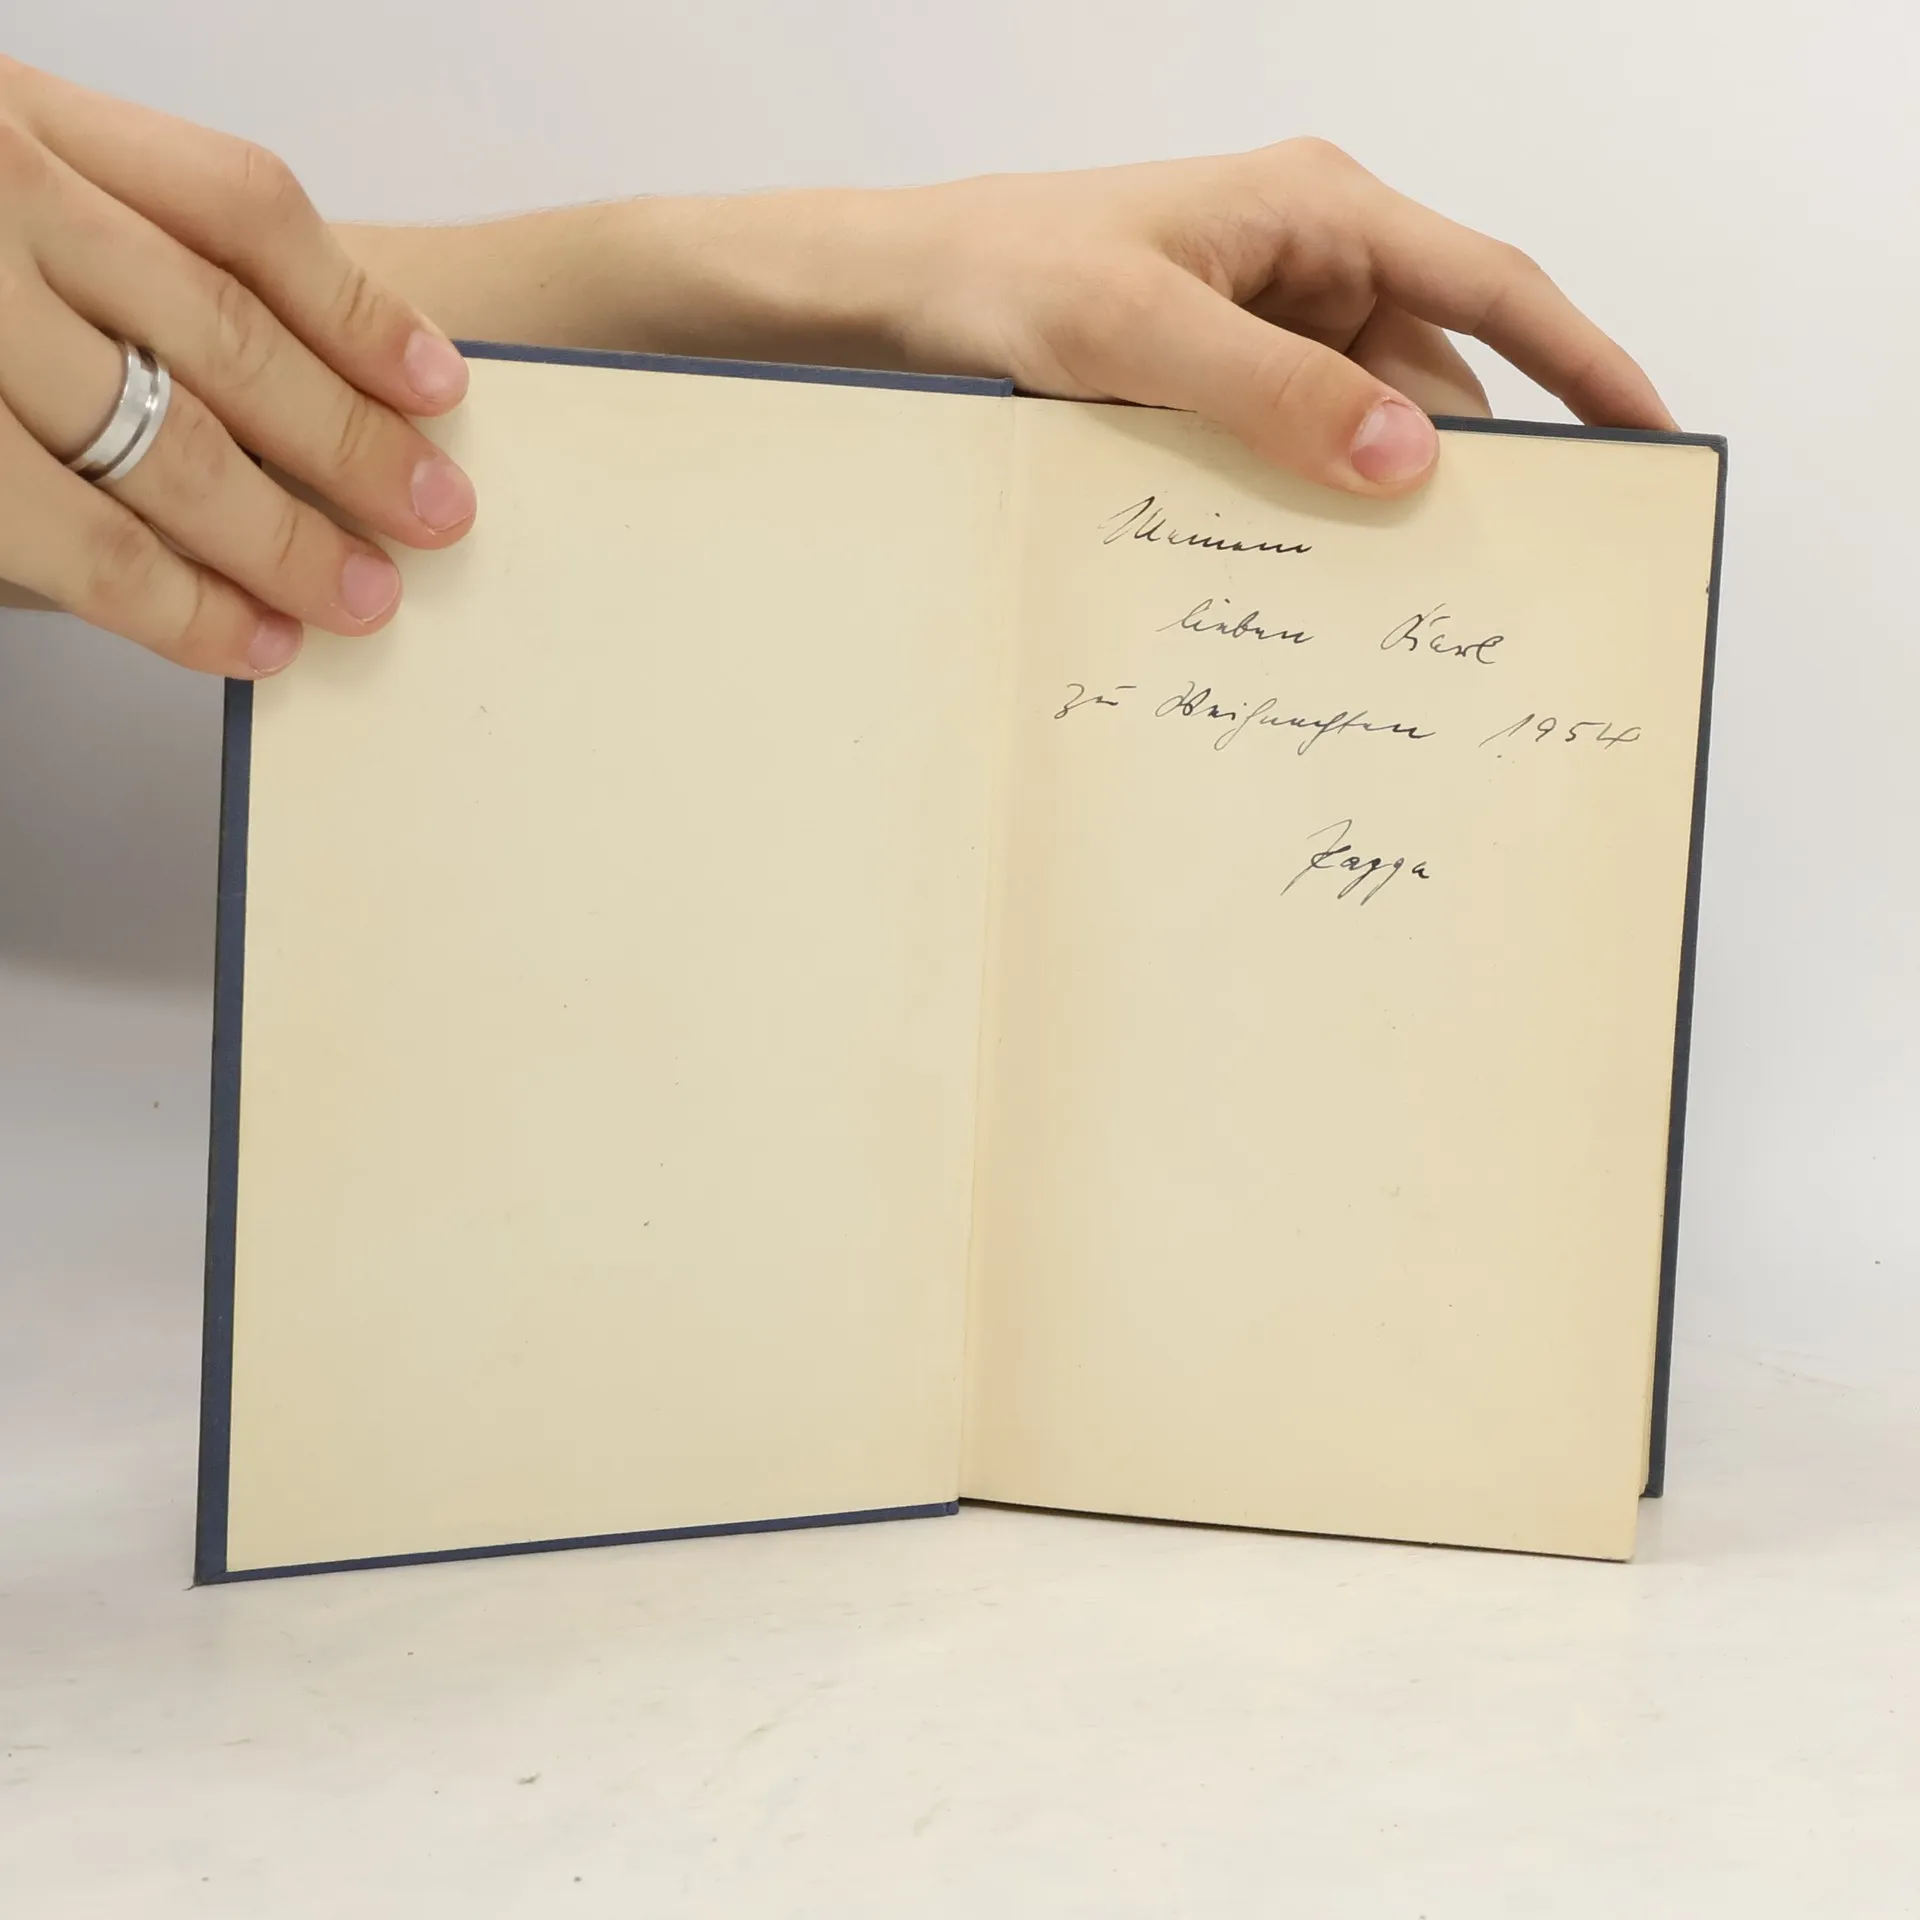 Meinem
lieben Karl
zu Weihnachten 1954